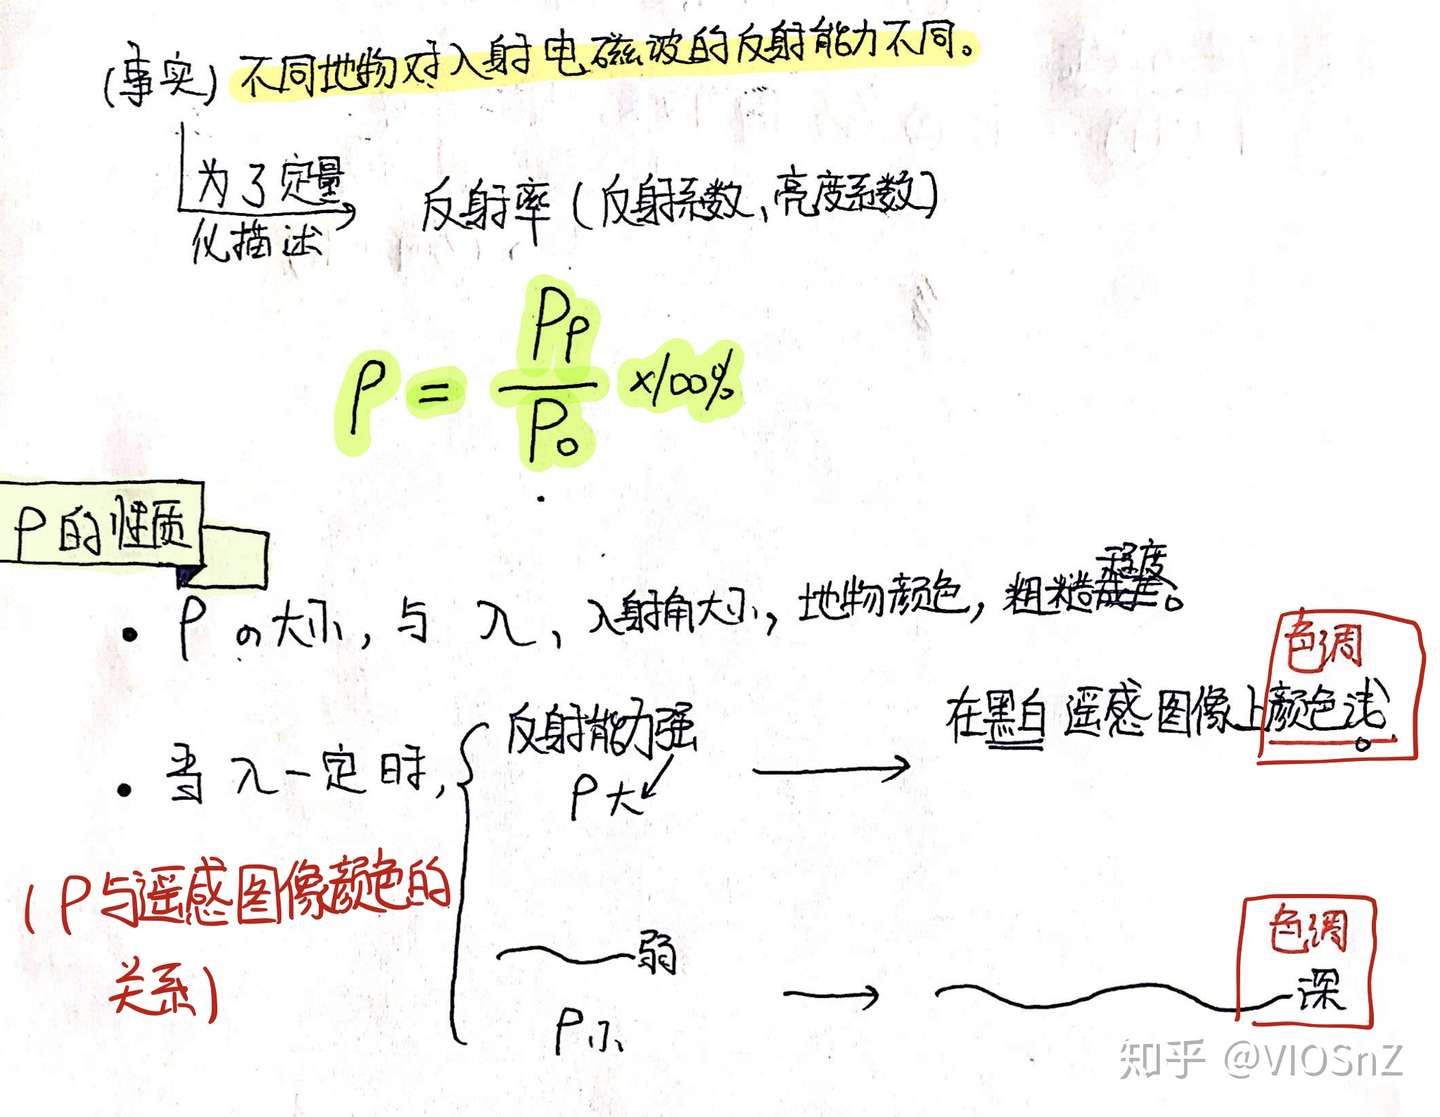 (事实) 不同地物对入射电磁波的反射能力不同。
为了定量
化描述
反射率(反射系数、亮度系数)
ρ = Pρ/P₀ ×100%
ρ的性质
• ρ的大小,与λ、入射角大小,地物颜色,粗糙程度。
• 当λ一定时,
反射能力强
ρ大
在黑白遥感图像上颜色浅。
色调
(ρ与遥感图像颜色的
关系)
弱
ρ小
色调
深
知乎 @VIOSnZ